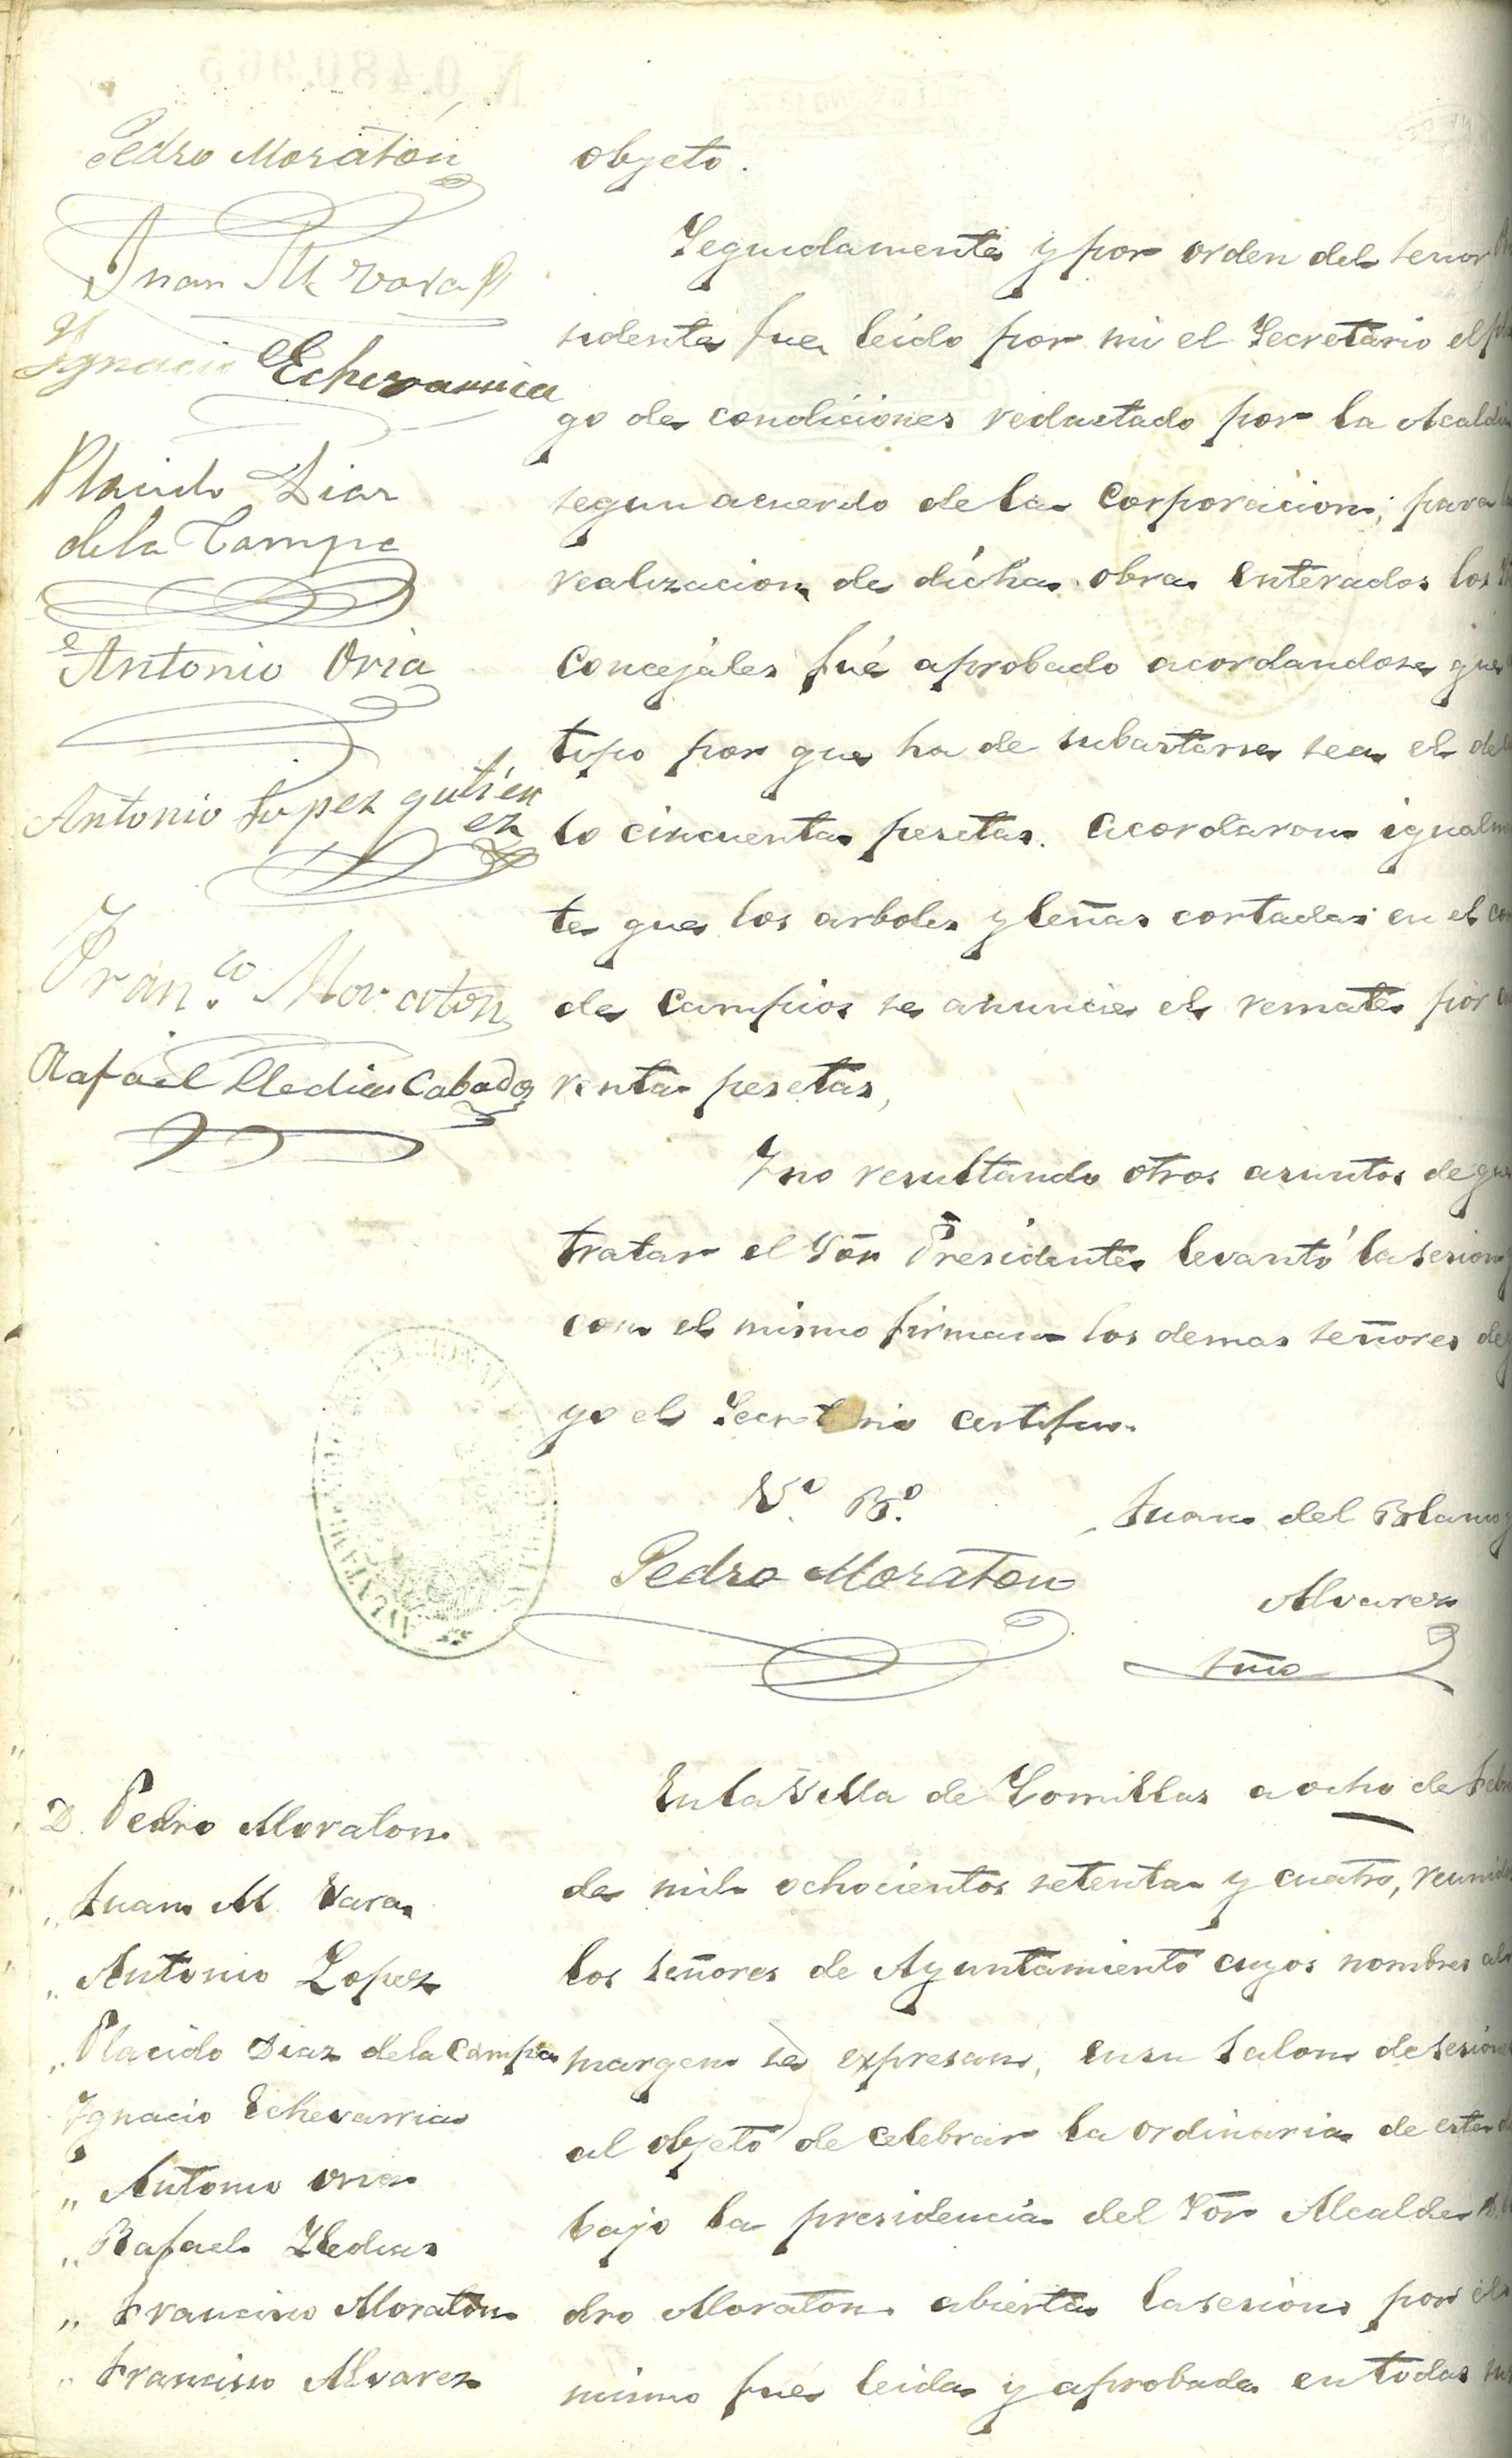 Pedro Moratón
Juan M Vara
Ygnacio Echevarria
Placido Diaz
de la Campa
Antonio Oria
Antonio Lopez gutierr
ez
Fran.co Moraton
Rafael Lledias Cabada
objeto.
Seguidamente y por orden del señor
sidente fue leido por mi el Secretario el
go de condiciones redactado por la Alcaldia
segun acuerdo de la Corporacion, para
realizacion de dicha obra enterados los
Concejales fué aprobado acordandose que
tipo por que ha de subastarse sea el de
to cincuenta pesetas. Acordaron igualmen
te que los arboles y leñas cortadas en el
de Campios se anuncie el remate por
renta pesetas,
Y no resultando otros asuntos de que
tratar el Sōr Presidente levantó la sesion
con el mismo firman los demas señores de
yo el Secretario certifico.
Vº. Bº.
Pedro Moraton
Juan del Blanco y
Alvarez
Srio
D. Pedro Moraton
" Juan M. Vara
" Antonio Lopez
" Placido Diaz de la Campa
Ygnacio Echevarria
" Antonio Oria
" Rafael Lledias
" Francisco Moraton
" Francisco Alvarez
En la Villa de Comillas a ocho de Febr
de mil ochocientos setenta y cuatro, reunidos
los señores de Ayuntamiento cuyos nombres al
margen se expresan, en su Salon de sesiones
al objeto de celebrar la ordinaria de este
bajo la presidencia del Sōr Alcalde
dro Moraton abierta la sesion por el
mismo fue leida y aprobada en todas